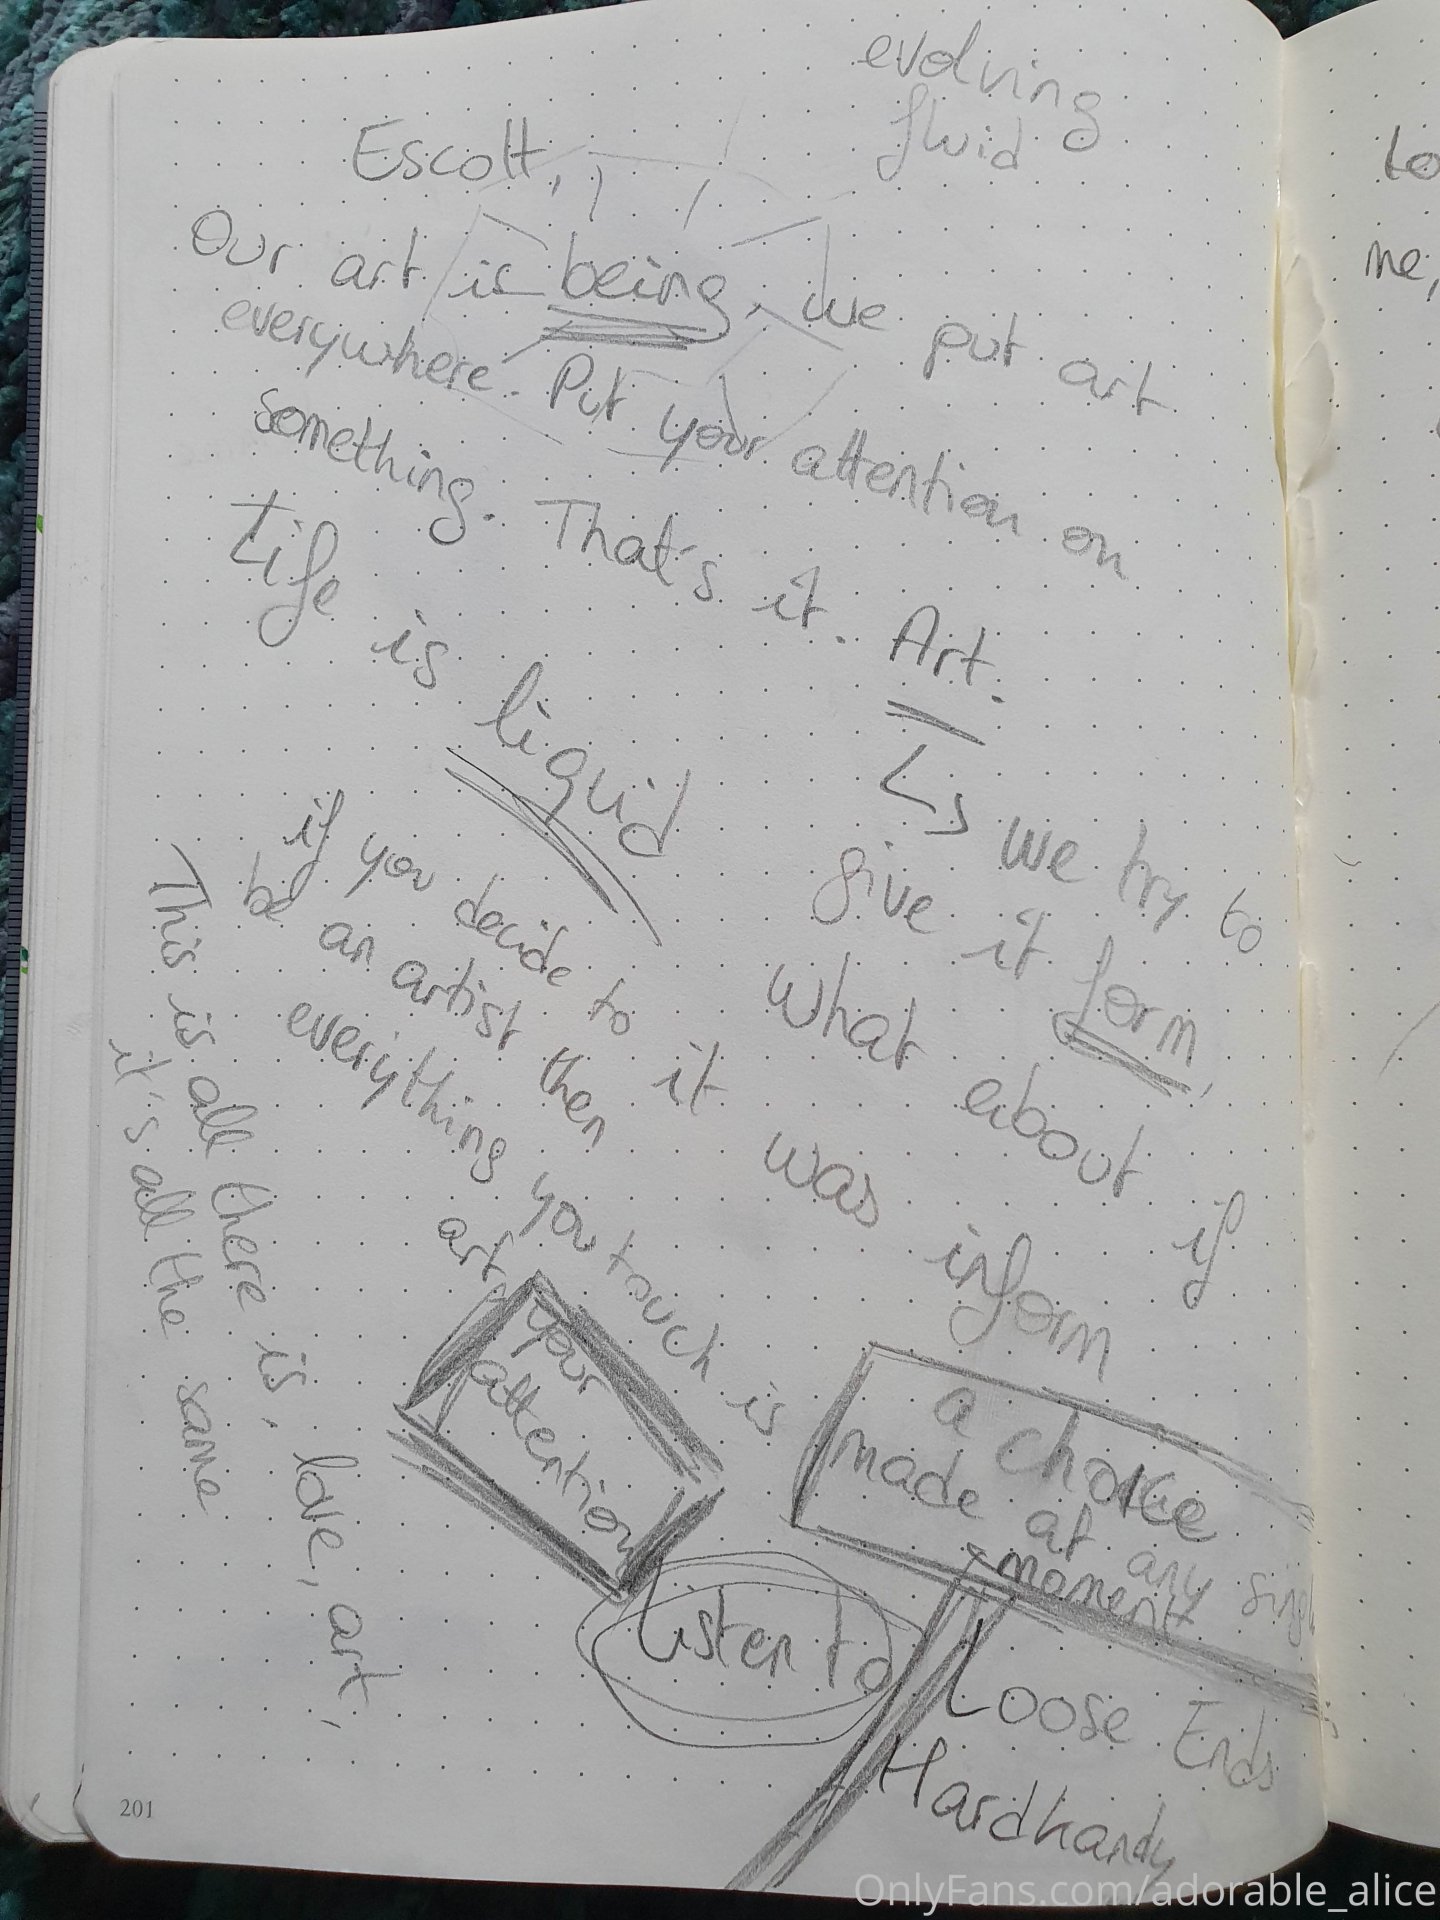 evolving
fluid
Escott,
Our art is being, we put art
everywhere. Put your attention on
something. That's it. Art.
Life is liquid
↳ we try to
give it form,
what about if
it was inform
if you decide to
be an artist then
everything you touch is
art,
your
attention
This is all there is, love, art,
it's all the same
a choice
made at any single
moment
Listen to
Loose Ends
Hardhandy
to
me,
201
OnlyFans.com/adorable_alice